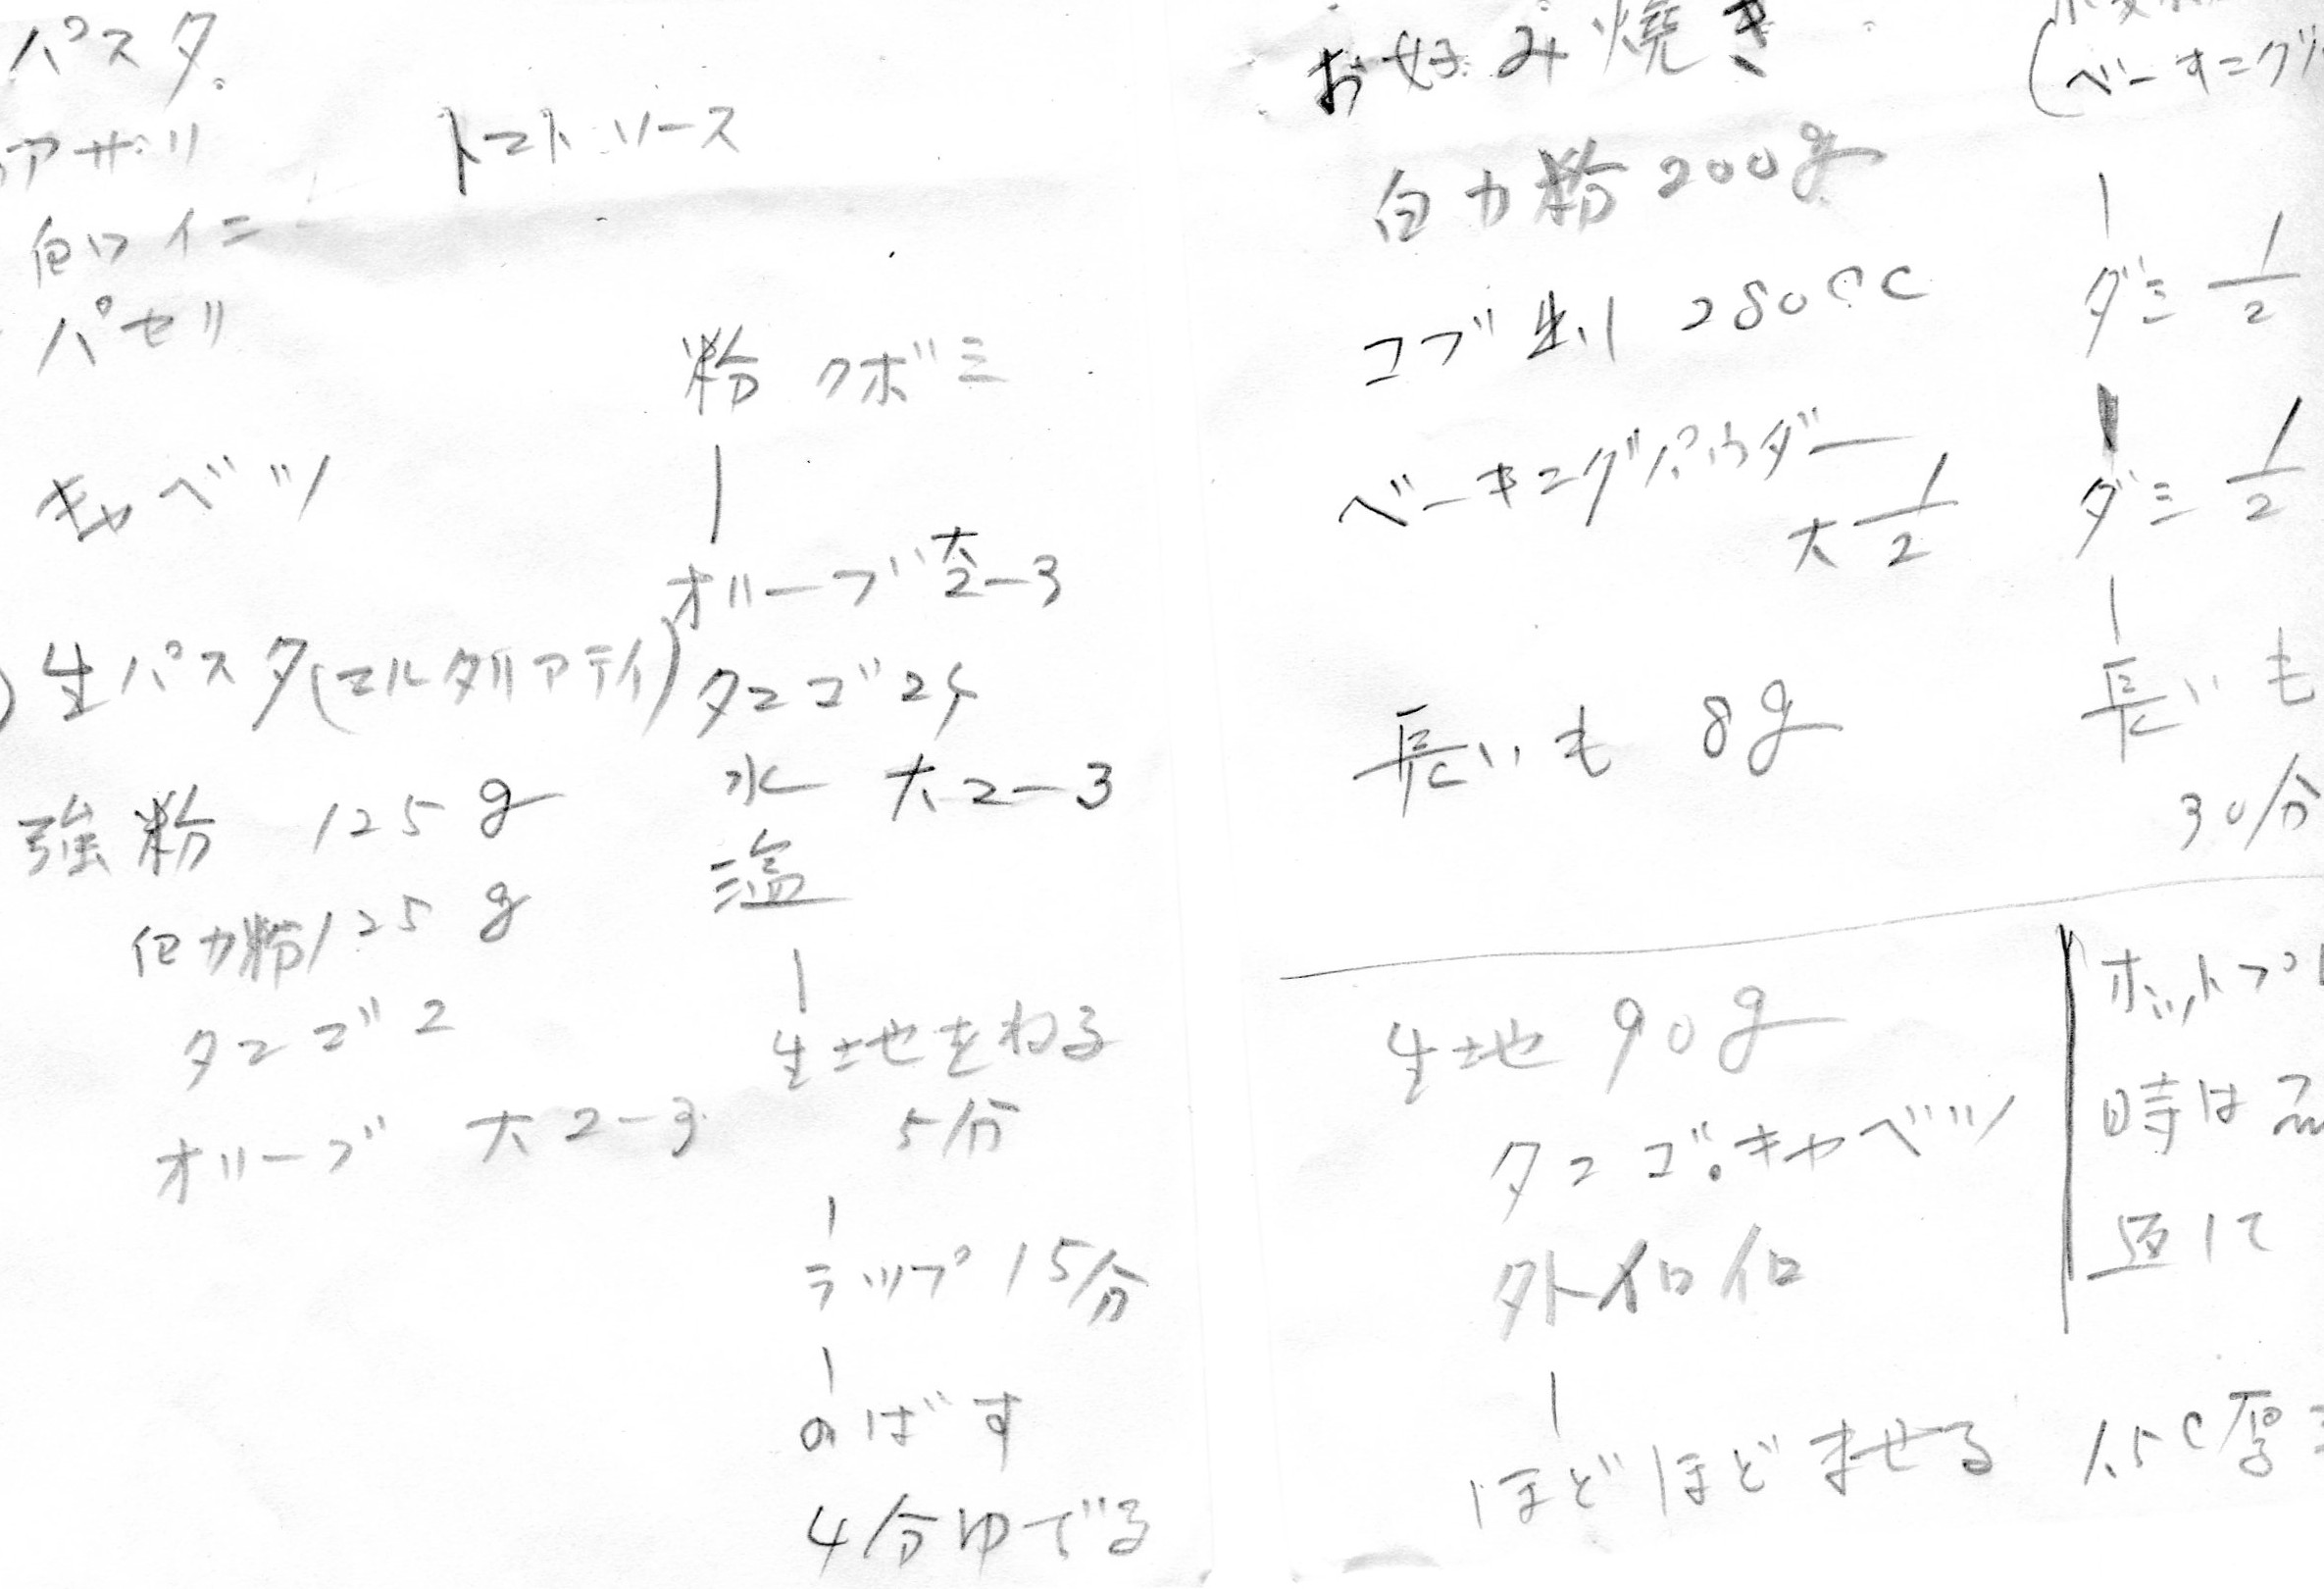 パスタ
アサリ
トマトソース
白ワイン
パセリ
キャベツ
生パスタ(マルタリアティ)
強粉 125g
白力粉125g
タマゴ2
オリーブ 大2-3
粉 クボミ
オリーブ大2-3
タマゴ2ケ
水 大2-3
塩
生地をねる
5分
ラップ15分
のばす
4分ゆでる
お好み焼き
白力粉200g
コブ 280cc
ベーキングパウダー
大1/2
長いも 8g
(ベーキング
ダシ1/2
ダシ1/2
長いも
30分
生地 90g
タマゴ・キャベツ
外イロイロ
ほどほどませる
ホットプレ
時は
1.5C厚